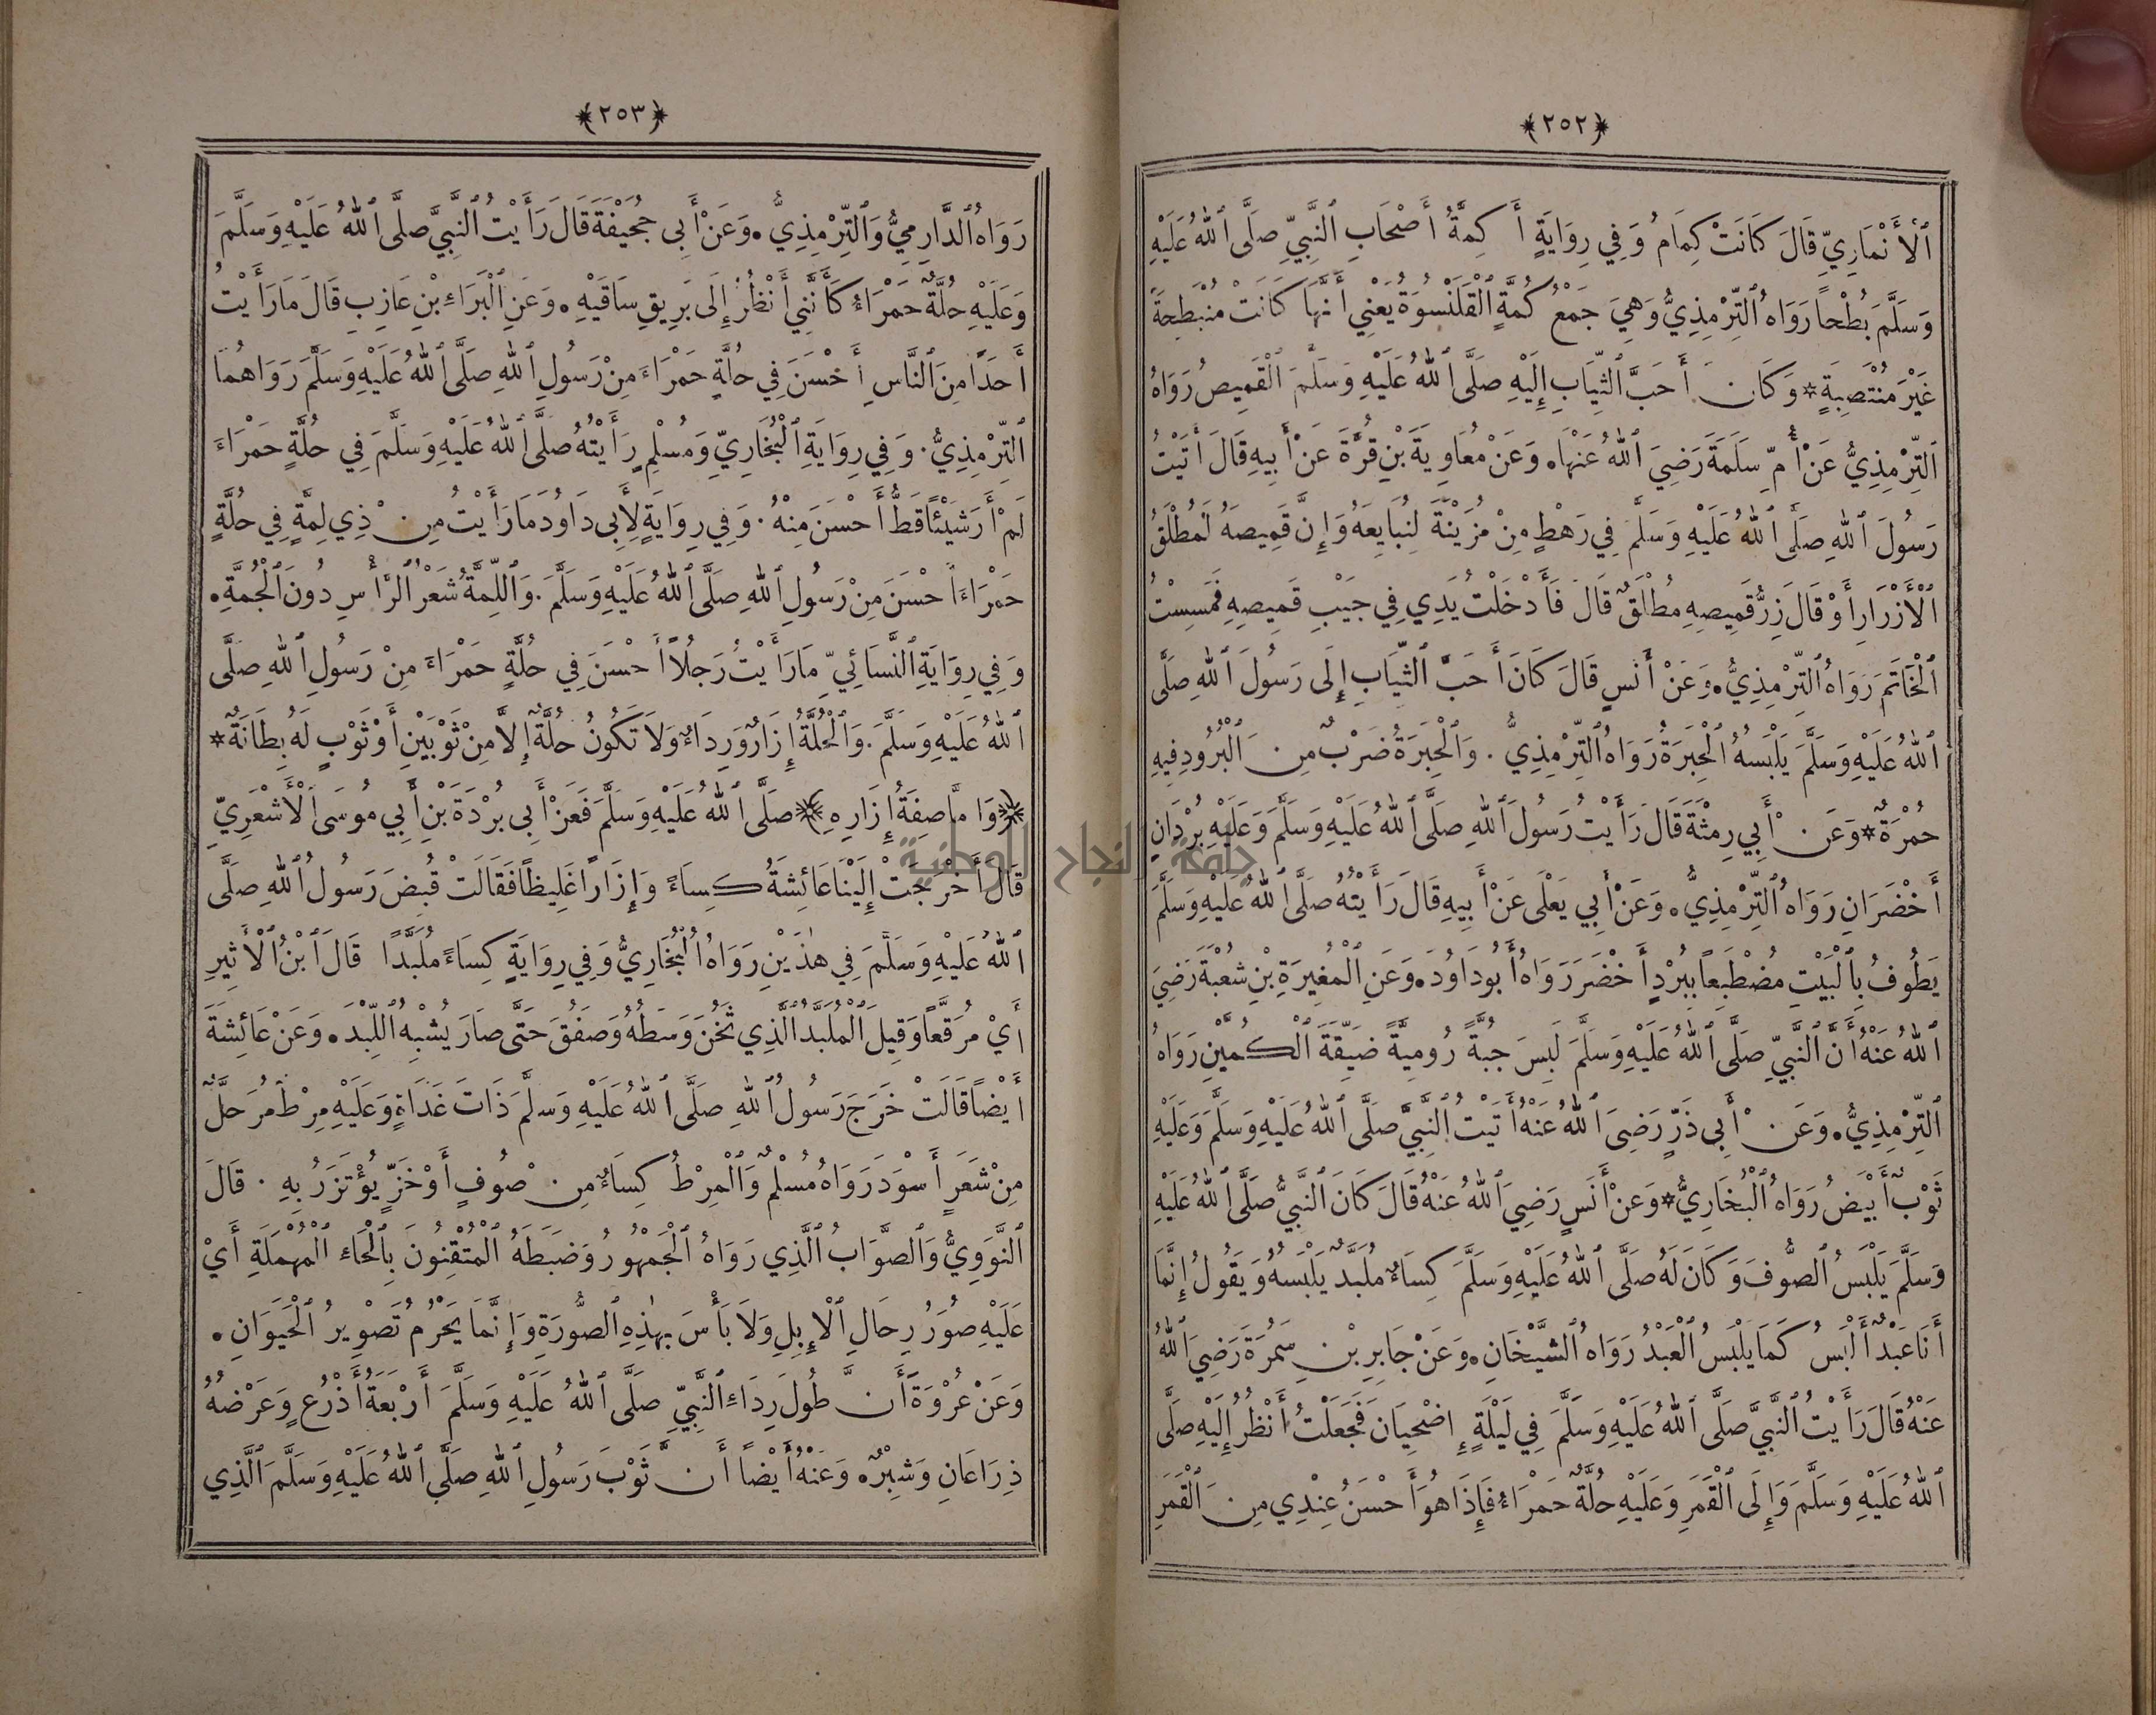 ﴿٢٥٢﴾
ٱلْأَنْمَارِيِّ قَالَ كَانَتْ كِمَامُ وَفِي رِوَايَةٍ أَكِمَّةُ أَصْحَابِ ٱلنَّبِيِّ صَلَّى ٱللهُ عَلَيْهِ
وَسَلَّمَ بُطْحاً رَوَاهُ ٱلتِّرْمِذِيُّ وَهِيَ جَمْعُ كُمَّةٍ ٱلْقَلَنْسُوَةُ يَعْنِي أَنَّهَا كَانَتْ مُنْبَطِحَةً
غَيْرَ مُنْتَصِبَةٍ * وَكَانَ أَحَبَّ ٱلثِّيَابِ إِلَيْهِ صَلَّى ٱللهُ عَلَيْهِ وَسَلَّمَ ٱلْقَمِيصُ رَوَاهُ
ٱلتِّرْمِذِيُّ عَنْ أُمِّ سَلَمَةَ رَضِيَ ٱللهُ عَنْهَا. وَعَنْ مُعَاوِيَةَ بْنِ قُرَّةَ عَنْ أَبِيهِ قَالَ أَتَيْتُ
رَسُولَ ٱللهِ صَلَّى ٱللهُ عَلَيْهِ وَسَلَّمَ فِي رَهْطٍ مِنْ مُزَيْنَةَ لِنُبَايِعَهُ وَإِنَّ قَمِيصَهُ لَمُطْلَقُ
ٱلْأَزْرَارِ أَوْ قَالَ زِرُّ قَمِيصِهِ مُطْلَقٌ قَالَ فَأَدْخَلْتُ يَدِي فِي جَيْبِ قَمِيصِهِ فَمَسِسْتُ
ٱلْخَاتَمَ رَوَاهُ ٱلتِّرْمِذِيُّ. وَعَنْ أَنَسٍ قَالَ كَانَ أَحَبَّ ٱلثِّيَابِ إِلَى رَسُولَ ٱللهِ صَلَّى
ٱللهُ عَلَيْهِ وَسَلَّمَ يَلْبَسُهُ ٱلْحِبَرَةُ رَوَاهُ ٱلتِّرْمِذِيُّ. وَٱلْحِبَرَةُ ضَرْبٌ مِنَ ٱلْبُرُودِ فِيهِ
حُمْرَةٌ * وَعَنْ أَبِي رِمْثَةَ قَالَ رَأَيْتُ رَسُولَ ٱللهِ صَلَّى ٱللهُ عَلَيْهِ وَسَلَّمَ وَعَلَيْهِ بُرْدَانِ
أَخْضَرَانِ رَوَاهُ ٱلتِّرْمِذِيُّ. وَعَنْ أَبِي يَعْلَى عَنْ أَبِيهِ قَالَ رَأَيْتُهُ صَلَّى ٱللهُ عَلَيْهِ وَسَلَّمَ
يَطُوفُ بِٱلْبَيْتِ مُضْطَبِعاً بِبُرْدٍ أَخْضَرَ رَوَاهُ أَبُو دَاوُدَ. وَعَنِ ٱلْمُغِيرَةِ بْنِ شُعْبَةَ رَضِيَ
ٱللهُ عَنْهُ أَنَّ ٱلنَّبِيَّ صَلَّى ٱللهُ عَلَيْهِ وَسَلَّمَ لَبِسَ جُبَّةً رُومِيَّةً ضَيِّقَةَ ٱلْكُمَّيْنِ رَوَاهُ
ٱلتِّرْمِذِيُّ. وَعَنْ أَبِي ذَرٍّ رَضِيَ ٱللهُ عَنْهُ أَتَيْتُ ٱلنَّبِيَّ صَلَّى ٱللهُ عَلَيْهِ وَسَلَّمَ وَعَلَيْهِ
ثَوْبٌ أَبْيَضُ رَوَاهُ ٱلْبُخَارِيُّ * وَعَنْ أَنَسٍ رَضِيَ ٱللهُ عَنْهُ قَالَ كَانَ ٱلنَّبِيُّ صَلَّى ٱللهُ عَلَيْهِ
وَسَلَّمَ يَلْبَسُ ٱلصُّوفَ وَكَانَ لَهُ صَلَّى ٱللهُ عَلَيْهِ وَسَلَّمَ كِسَاءٌ مُلَبَّدٌ يَلْبَسُهُ وَيَقُولُ إِنَّمَا
أَنَا عَبْدٌ أَلْبَسُ كَمَا يَلْبَسُ ٱلْعَبْدُ رَوَاهُ ٱلشَّيْخَانِ. وَعَنْ جَابِرِ بْنِ سَمُرَةَ رَضِيَ ٱللهُ
عَنْهُ قَالَ رَأَيْتُ ٱلنَّبِيَّ صَلَّى ٱللهُ عَلَيْهِ وَسَلَّمَ فِي لَيْلَةٍ إِضْحِيَانَ فَجَعَلْتُ أَنْظُرُ إِلَيْهِ صَلَّى
ٱللهُ عَلَيْهِ وَسَلَّمَ وَإِلَى ٱلْقَمَرِ وَعَلَيْهِ حُلَّةٌ حَمْرَاءُ فَإِذَا هُوَ أَحْسَنُ عِنْدِي مِنَ ٱلْقَمَرِ
﴿٢٥٣﴾
رَوَاهُ ٱلدَّارِمِيُّ وَٱلتِّرْمِذِيُّ. وَعَنْ أَبِي جُحَيْفَةَ قَالَ رَأَيْتُ ٱلنَّبِيَّ صَلَّى ٱللهُ عَلَيْهِ وَسَلَّمَ
وَعَلَيْهِ حُلَّةٌ حَمْرَاءُ كَأَنِّي أَنْظُرُ إِلَى بَرِيقِ سَاقَيْهِ. وَعَنِ ٱلْبَرَاءِ بْنِ عَازِبٍ قَالَ مَا رَأَيْتُ
أَحَدًا مِنَ ٱلنَّاسِ أَحْسَنَ فِي حُلَّةٍ حَمْرَاءَ مِنْ رَسُولِ ٱللهِ صَلَّى ٱللهُ عَلَيْهِ وَسَلَّمَ رَوَاهُمَا
ٱلتِّرْمِذِيُّ. وَفِي رِوَايَةِ ٱلْبُخَارِيِّ وَمُسْلِمٍ رَأَيْتُهُ صَلَّى ٱللهُ عَلَيْهِ وَسَلَّمَ فِي حُلَّةٍ حَمْرَاءَ
لَمْ أَرَ شَيْئًا قَطُّ أَحْسَنَ مِنْهُ. وَفِي رِوَايَةٍ لِأَبِي دَاوُدَ مَا رَأَيْتُ مِنْ ذِي لِمَّةٍ فِي حُلَّةٍ
حَمْرَاءَ أَحْسَنَ مِنْ رَسُولِ ٱللهِ صَلَّى ٱللهُ عَلَيْهِ وَسَلَّمَ. وَٱللِّمَّةُ شَعْرُ ٱلرَّأْسِ دُونَ ٱلْجُمَّةِ.
وَفِي رِوَايَةِ ٱلنَّسَائِيِّ مَا رَأَيْتُ رَجُلًا أَحْسَنَ فِي حُلَّةٍ حَمْرَاءَ مِنْ رَسُولِ ٱللهِ صَلَّى
ٱللهُ عَلَيْهِ وَسَلَّمَ. وَٱلْحُلَّةُ إِزَارٌ وَرِدَاءٌ وَلَا تَكُونُ حُلَّةً إِلَّا مِنْ ثَوْبَيْنِ أَوْ ثَوْبٍ لَهُ بِطَانَةٌ *
﴿وَأَمَّا صِفَةُ إِزَارِهِ﴾ صَلَّى ٱللهُ عَلَيْهِ وَسَلَّمَ فَعَنْ أَبِي بُرْدَةَ بْنِ أَبِي مُوسَى ٱلْأَشْعَرِيِّ
قَالَ أَخْرَجَتْ إِلَيْنَا عَائِشَةُ كِسَاءً وَإِزَارًا غَلِيظًا فَقَالَتْ قُبِضَ رَسُولُ ٱللهِ صَلَّى
ٱللهُ عَلَيْهِ وَسَلَّمَ فِي هٰذَيْنِ رَوَاهُ ٱلْبُخَارِيُّ وَفِي رِوَايَةٍ كِسَاءً مُلَبَّدًا قَالَ ٱبْنُ ٱلْأَثِيرِ
أَيْ مُرَقَّعًا وَقِيلَ ٱلْمُلَبَّدُ ٱلَّذِي ثَخُنَ وَسَطُهُ وَصَفُقَ حَتَّى صَارَ يُشْبِهُ ٱللِّبْدَ. وَعَنْ عَائِشَةَ
أَيْضًا قَالَتْ خَرَجَ رَسُولُ ٱللهِ صَلَّى ٱللهُ عَلَيْهِ وَسَلَّمَ ذَاتَ غَدَاةٍ وَعَلَيْهِ مِرْطٌ مُرَحَّلٌ
مِنْ شَعَرٍ أَسْوَدَ رَوَاهُ مُسْلِمٌ وَٱلْمِرْطُ كِسَاءٌ مِنْ صُوفٍ أَوْ خَزٍّ يُؤْتَزَرُ بِهِ. قَالَ
ٱلنَّوَوِيُّ وَٱلصَّوَابُ ٱلَّذِي رَوَاهُ ٱلْجُمْهُورُ وَضَبَطَهُ ٱلْمُتْقِنُونَ بِٱلْحَاءِ ٱلْمُهْمَلَةِ أَيْ
عَلَيْهِ صُوَرُ رِحَالِ ٱلْإِبِلِ وَلَا بَأْسَ بِهٰذِهِ ٱلصُّورَةِ وَإِنَّمَا يَحْرُمُ تَصْوِيرُ ٱلْحَيَوَانِ.
وَعَنْ عُرْوَةَ أَنَّ طُولَ رِدَاءِ ٱلنَّبِيِّ صَلَّى ٱللهُ عَلَيْهِ وَسَلَّمَ أَرْبَعَةُ أَذْرُعٍ وَعَرْضُهُ
ذِرَاعَانِ وَشِبْرٌ. وَعَنْهُ أَيْضًا أَنَّ ثَوْبَ رَسُولِ ٱللهِ صَلَّى ٱللهُ عَلَيْهِ وَسَلَّمَ ٱلَّذِي
جامعة النجاح الوطنية